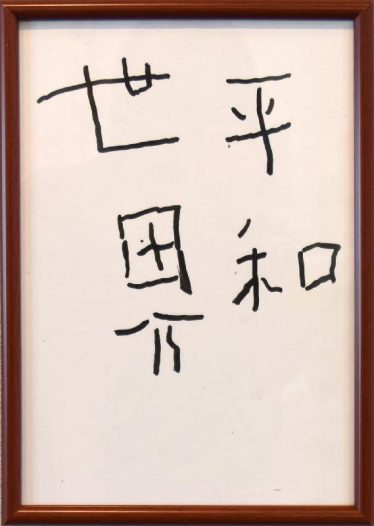 平和
世界